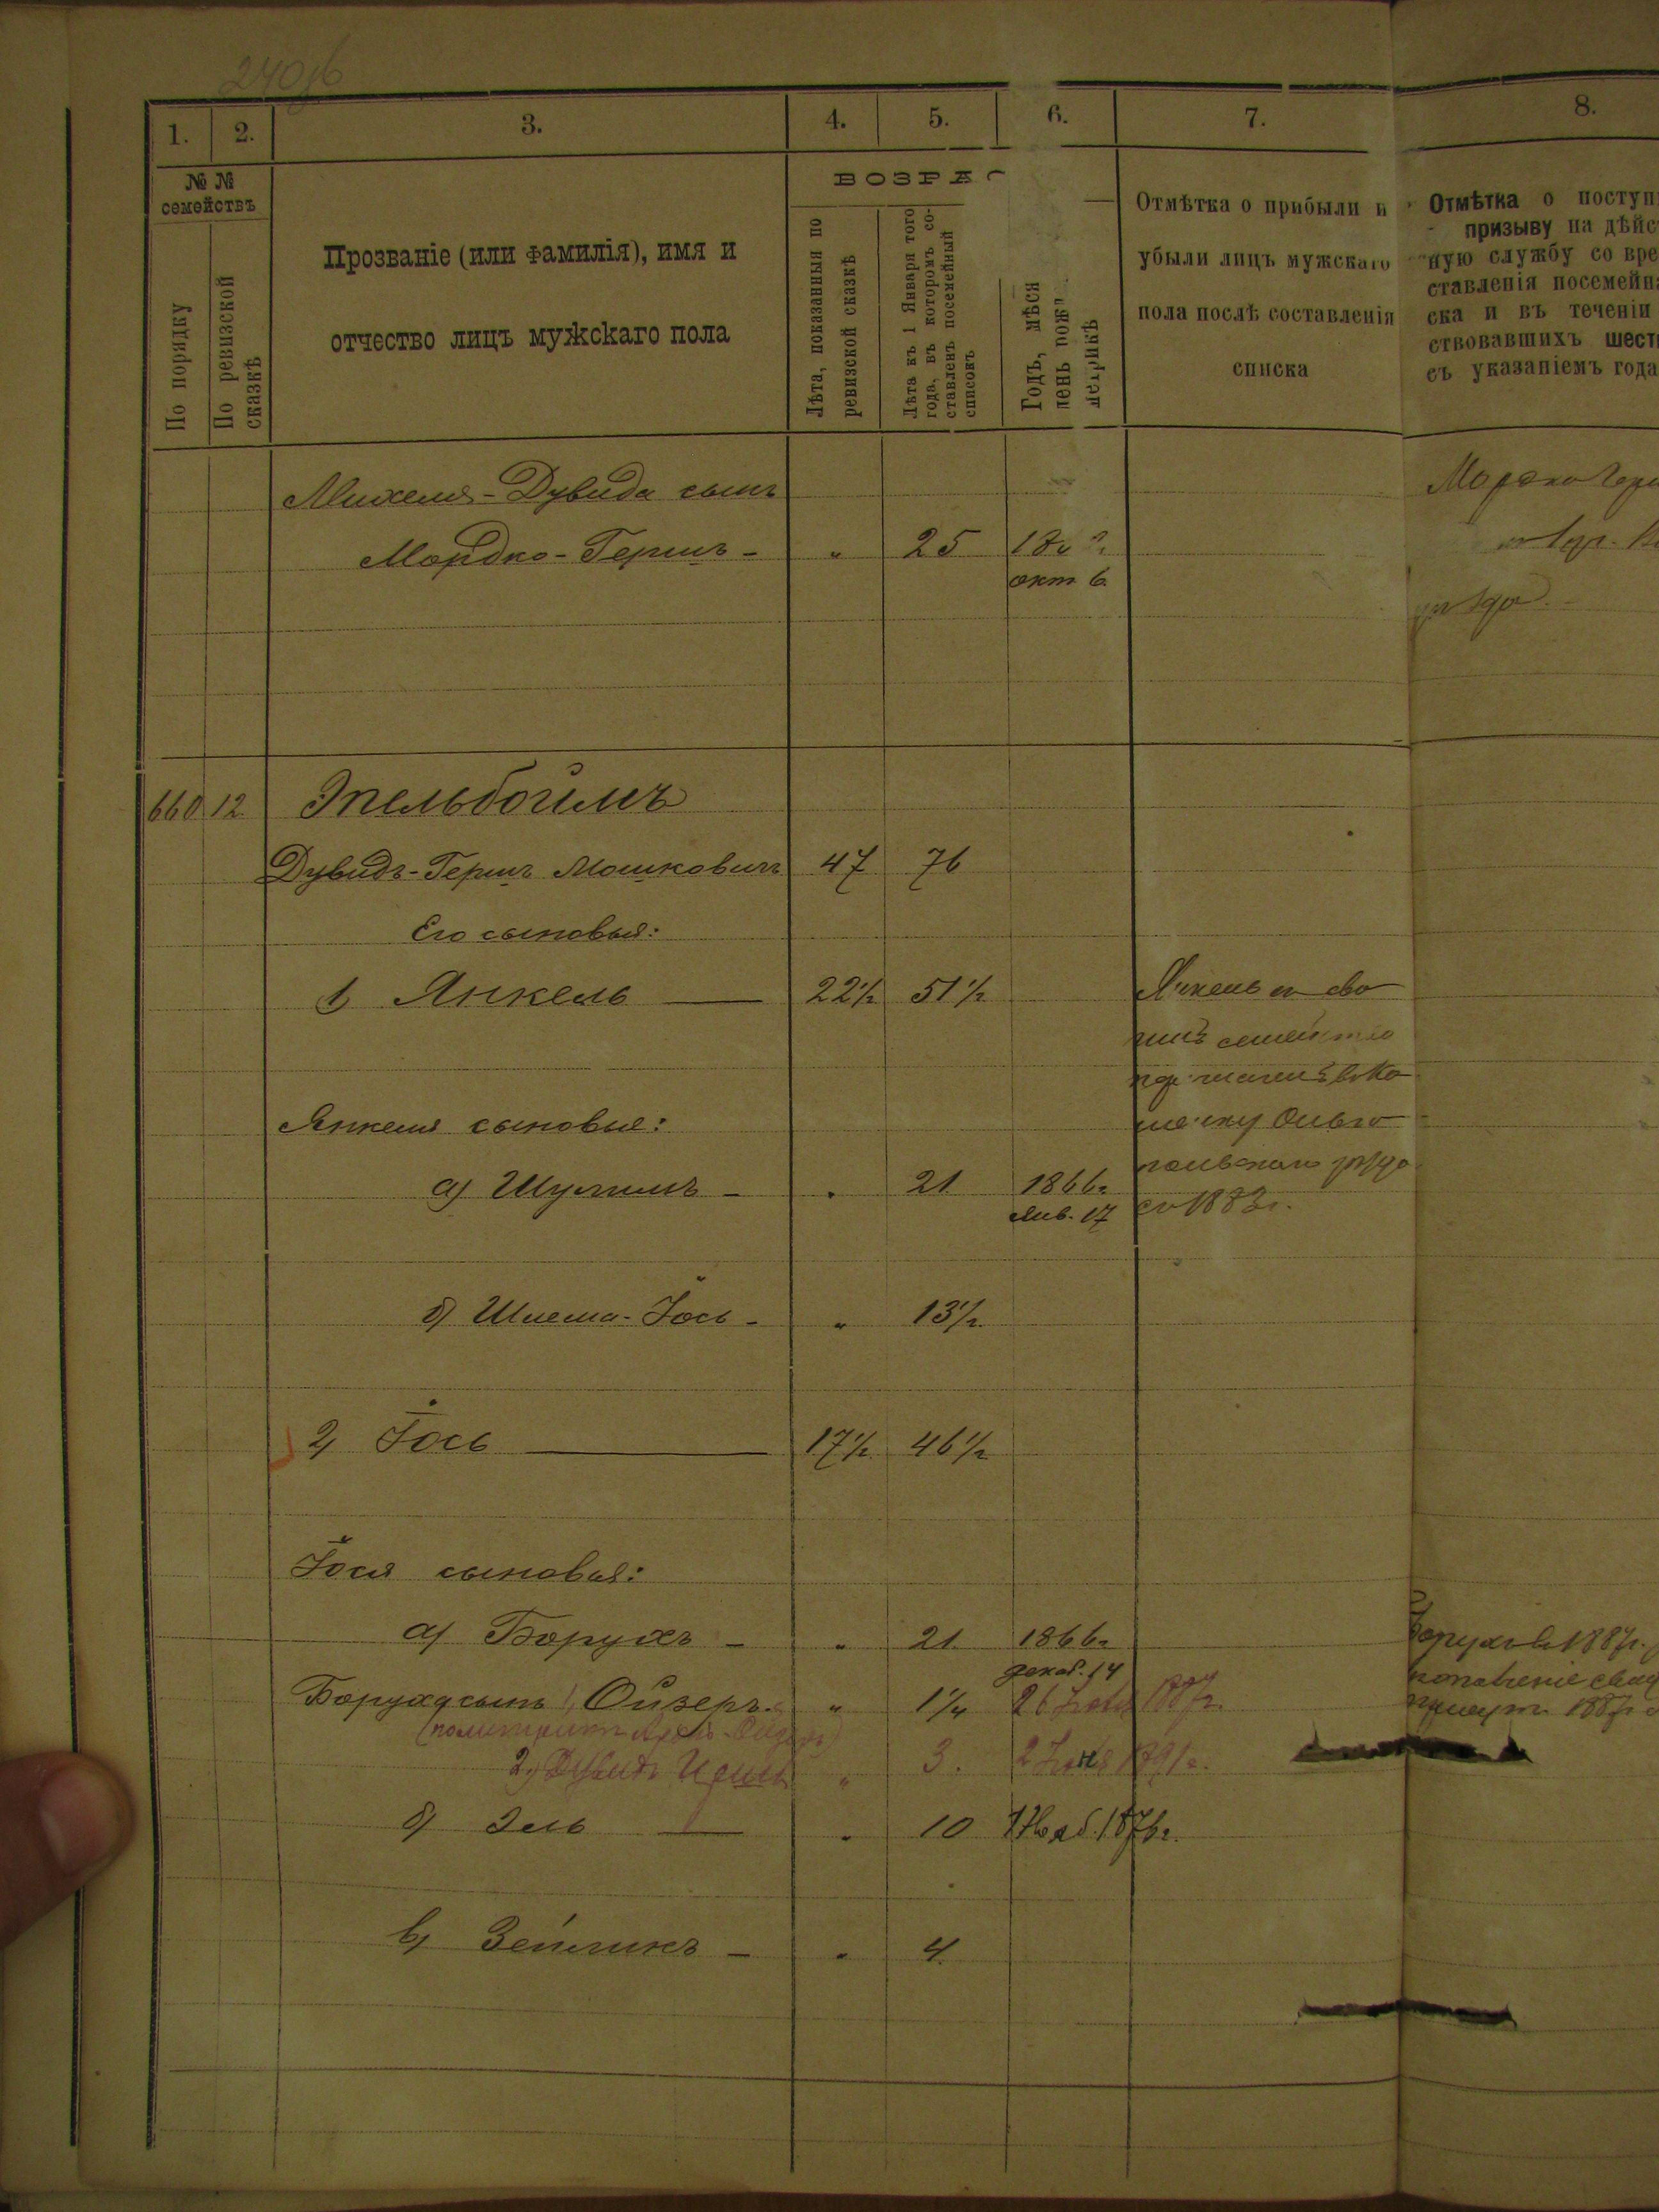 240об
1. 2. 3. 4. 5. 6. 7. 8.
№ №
семействъ
По порядку
По ревизской
сказкѣ
Прозваніе (или фамилія), имя и
отчество лицъ мужскаго пола
ВОЗРА
Лѣта, показанныя по
ревизской сказкѣ
Лѣта къ 1 Января того
года, въ которомъ со-
ставленъ посемейный
списокъ
Годъ, мѣся
день рож
метрикѣ
Отмѣтка о прибыли и
убыли лицъ мужскаго
пола послѣ составленія
списка
Отмѣтка о поступ
призыву на дѣйс
ную службу со вре
ставленія посемейн
ска и въ теченіи
ствовавшихъ шест
съ указаніемъ года
Михеля-Дувида сынъ
Мордко-Гершъ - " 25
окт 6
Мордко Гер
уѣзда.
660 12 Эпельбоймъ
Дувидъ-Гершъ Мошковичъ 47 76
Его сыновья:
1) Янкель — 22½ 51½
Янкель со сво
имъ семейство
перечисленъ въ Ко
Ольго
польскаго уѣзда
съ 1883г.
Янкеля сыновья:
а) Шулимъ - " 21 1866г
Янв. 17
б) Шлема-Іось - " 13½
2) Іось — 17½ 46½
Іося сыновья:
а) Борухъ - " 21. 1866г
декаб. 14
Борухъ въ 1887г.
Боруха сынъ 1, Ойзеръ. " 1¼ 26 1887г.
(по метрикѣ -Ойзеръ)
2) Дувидъ " 3. 2 Іюня 1891г.
1887г
б) Эль — " 10 Нояб. 1876г.
в) Зейликъ - " 4.